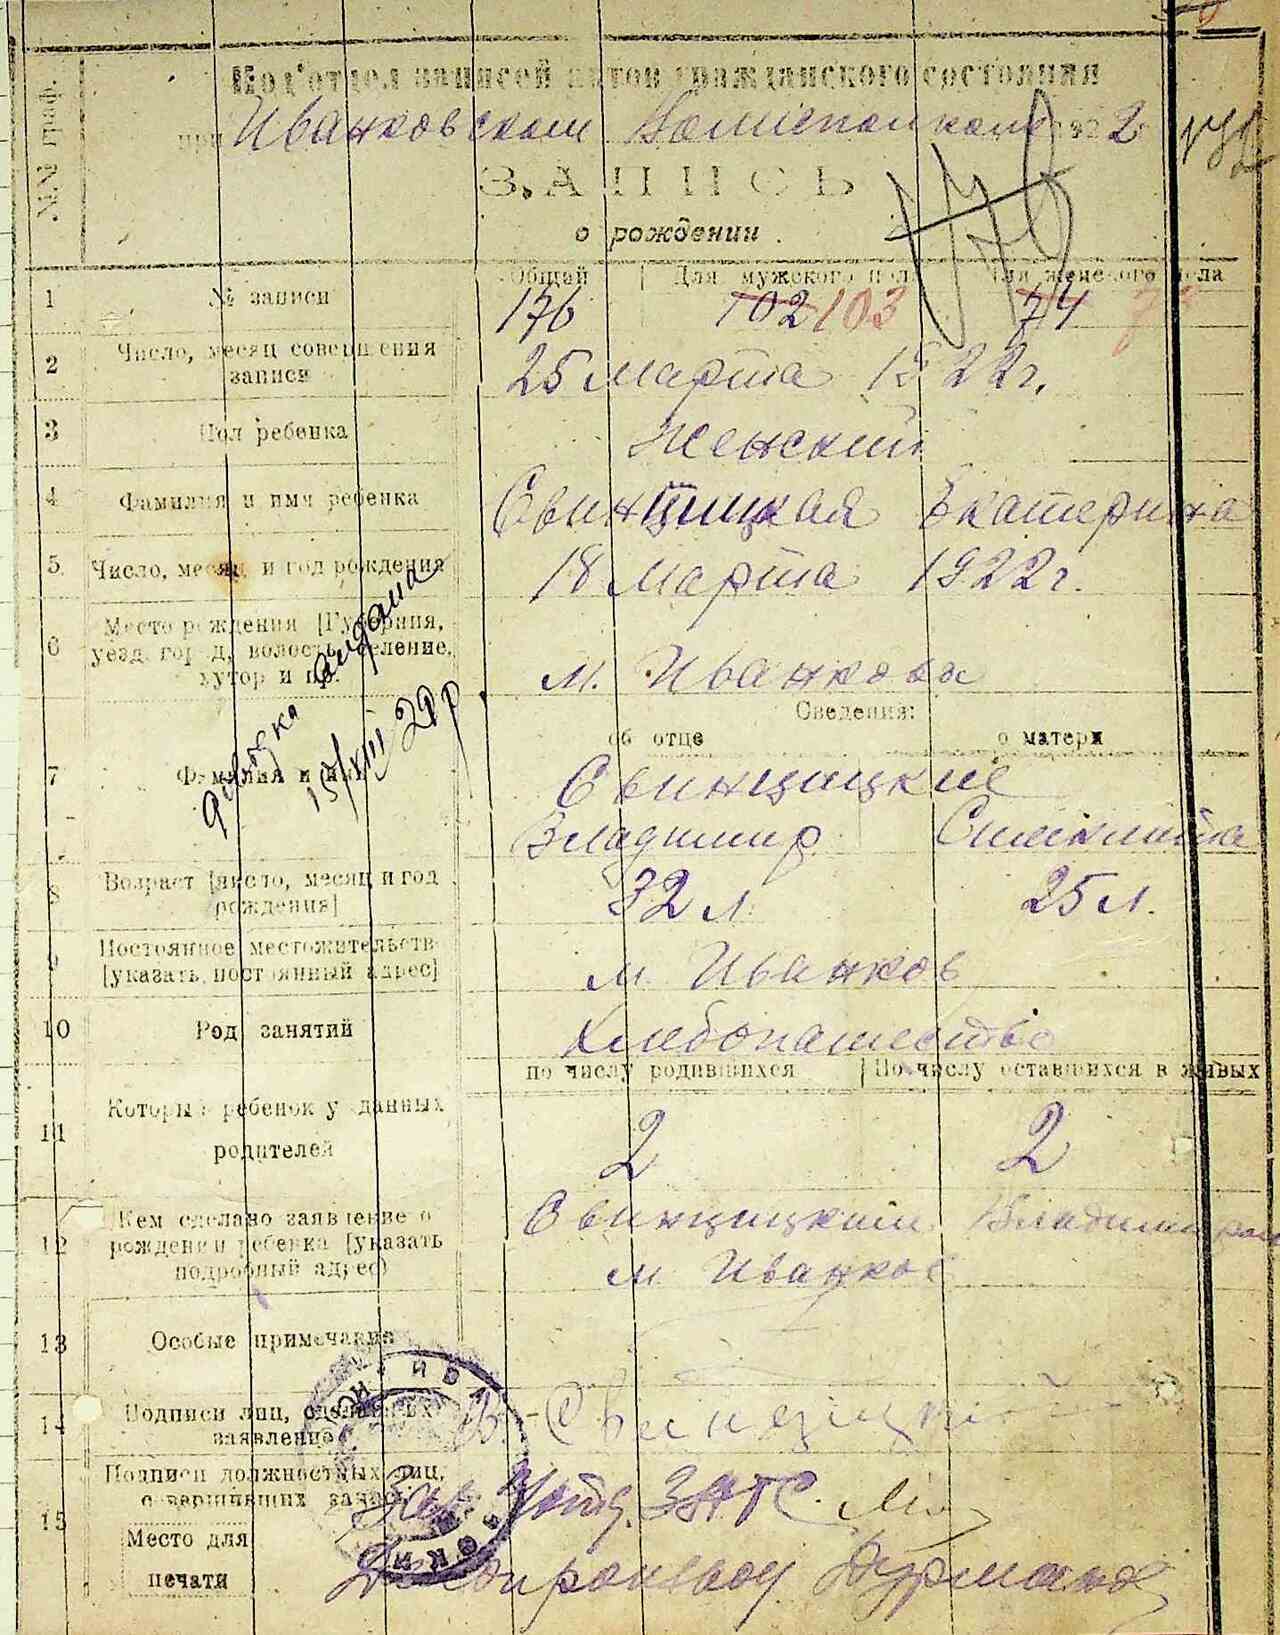 Под'отдел записей актов гражданского состояния
при Иванковском Волисполкоме 1922 г.
ЗАПИСЬ
о рождении.
№№ граф.
Общий Для мужского пола Для женского пола
1 № записи 176 102 103 74
2 Число, месяц совершения записи 25 Марта 1922 г.
3 Пол ребенка Женский
4 Фамилия и имя ребенка Свинцицкая Екатерина
5 Число, месяц и год рождения 18 Марта 1922 г.
6 Место рождения [Губерния,
уезд, город, волость, селение,
хутор и пр. м. Иванкова
выдана
15/XIII 29 р.
Сведения:
об отце о матери
7 Фамилия и имя Свинцицкие
Владимир
8 Возраст [число, месяц и год
рождения] 32 л. 25 л.
9 Постоянное местожительство
[указать постоянный адрес] м. Иванков
10 Род занятий Хлебопашество
по числу родившихся По числу оставшихся в живых
11 Который ребенок у данных
родителей 2 2
12 Кем сделано заявление о
рождении ребенка [указать
подробный адрес) Свинцицким Владимиром
м. Иванков
13 Особые примечания
14 Подписи лиц, сделавших
заявление В. Свинцицкий
15 Подписи должностных лиц,
совершивших запись Зав. ЗАГС
Место для
печати
Делопроизвод.